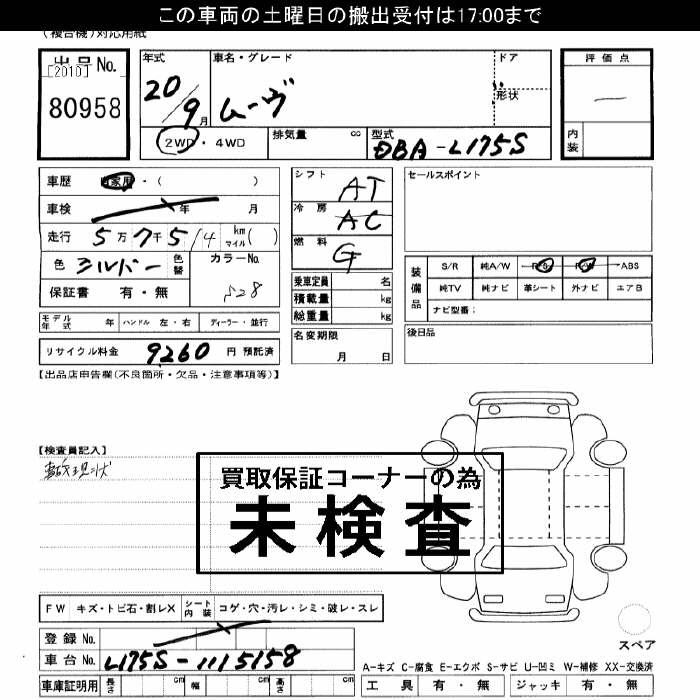 この車両の土曜日の搬出受付は17:00まで
(複合機)対応用紙
出品No.
[2010]
80958
年式
20/9月
車名・グレード
ムーヴ
ドア
形状
2WD・4WD
排気量 cc
型式
DBA-L175S
評価点
内装
車歴 自家用・( )
車検 年 月
走行 5万7千5/4 km マイル( )
色 シルバー 色替
カラーNo.
S28
保証書 有・無
シフト AT
冷房 AC
燃料 G
乗車定員 名
積載量 kg
総重量 kg
セールスポイント
装備品
S/R 純A/W P/S P/W ABS
純TV 純ナビ 革シート 外ナビ エアB
ナビ型番:
モデル年式 年 ハンドル 左・右 ディーラー・並行
リサイクル料金 9260 円 預託済
名変期限
月 日
後日品
【出品店申告欄(不良箇所・欠品・注意事項等)】
【検査員記入】
買取保証コーナーの為
未検査
FW キズ・トビ石・割レX シート内装 コゲ・穴・汚レ・シミ・破レ・スレ
登録No.
車台No. L175S-1115158
車庫証明用 長さ cm 幅 cm 高さ cm
スペア
A-キズ C-腐食 E-エクボ S-サビ U-凹ミ W-補修 XX-交換済
工具 有・無 ジャッキ 有・無